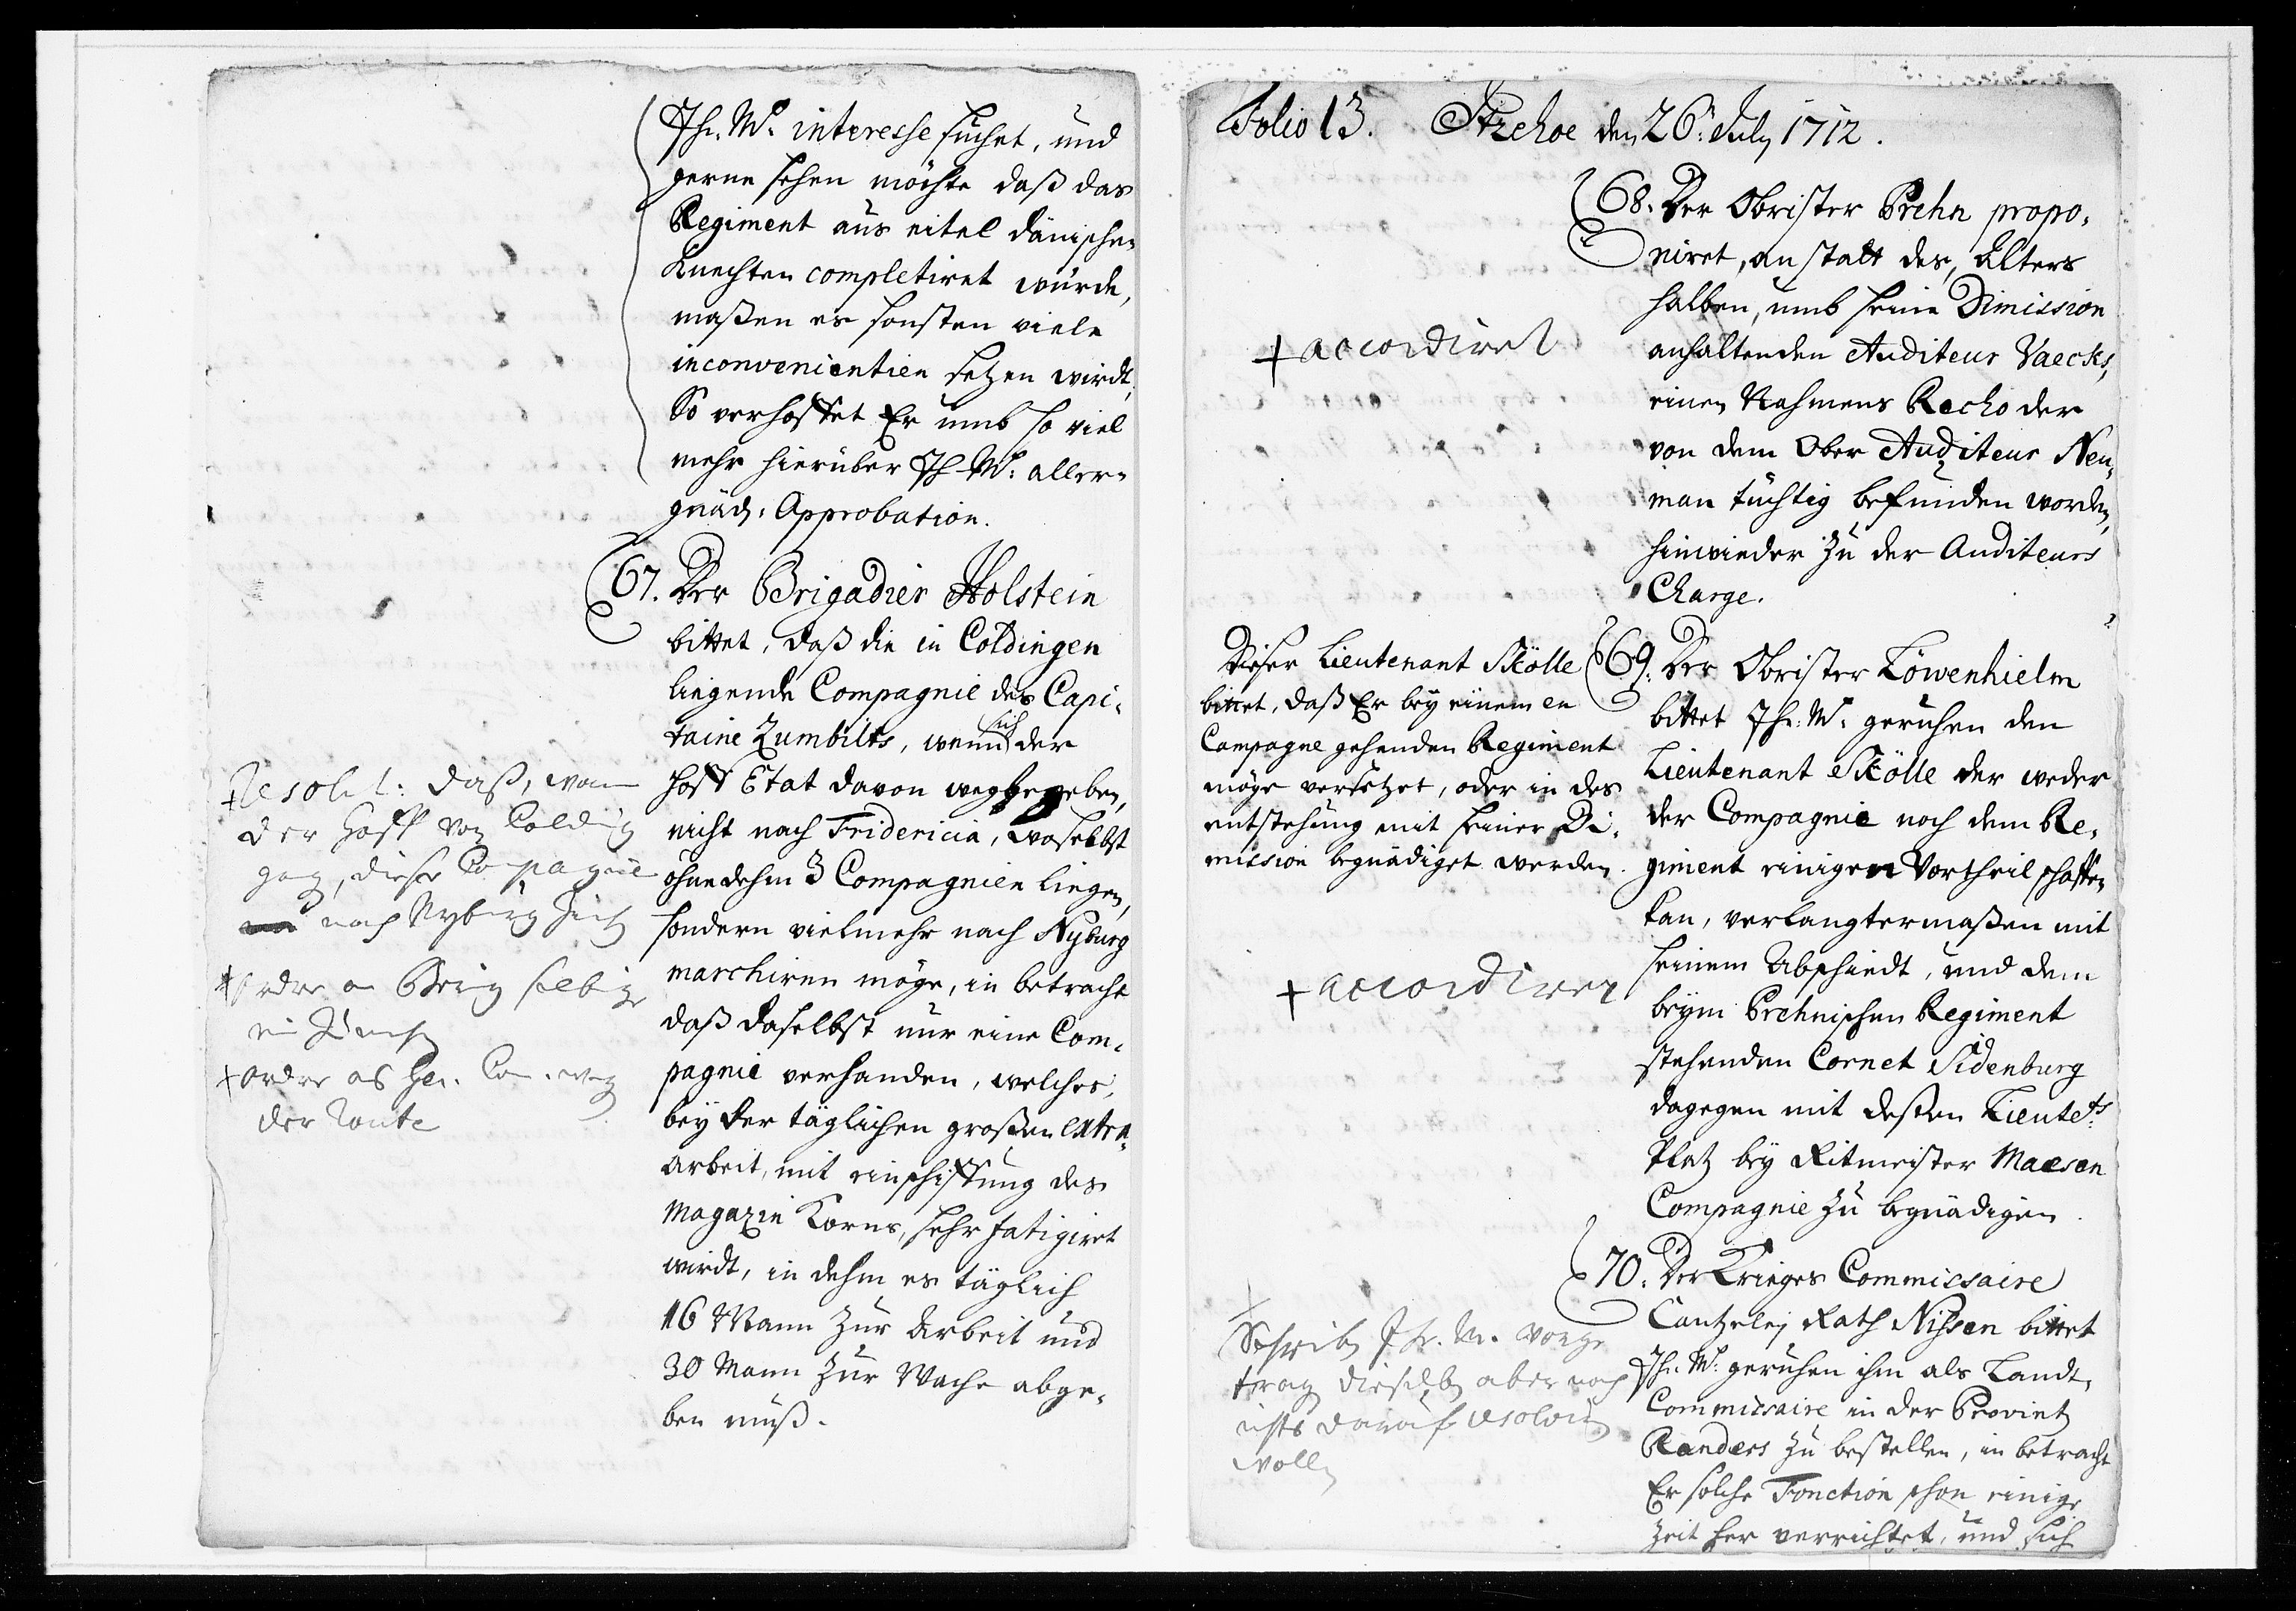 Ih. Mt. interesse suchet, und
gerne sehen möchte daß das
Regiment aus eitel dänischen
Knechten completiret würde,
maßen es sonsten viele
inconvenientien setzen wirdt,
So verhoffet Er umb so viel
mehr hierüber Ih Mt: aller-
gnäd: Approbation.
67. Der Brigadier Holstein
bittet, daß die in Coldingen
liegende Compagnie des Capi-
taine Zumbilts, wenn sich der
Hoff Etat davon wegbegeben,
nicht nach Fridericia, woselbst
ohnedehm 3 Compagnien liegen,
sondern vielmehr nach Nyburg
marchiren möge, in betracht
daß daselbst nur eine Com-
pagnie verhanden, welches,
bey der täglichen großen extra
Arbeit, mit einschiffung des
Magazin Korns, sehr fatigiret
wirdt, in dehm es täglich
16 Mann zur Arbeit und
30 Mann zur Wache abge-
ben muß.
+ Resolut: daß, wan
der Hoff von Colding
gang, diese Compagnie
nach Nyborg
+ Ordre an Brig
+ ordre Gen. Com. weg
der Route
Folio 13. Itzehoe den 26. July 1712.
68. Der Obrister Prehn propo-
niret, anstatt des, Alters
halben, umb seine Dimission
anhaltenden Auditeur Vaecks,
einen Nahmens Recho der
von dem Ober Auditeur Neu-
man tüchtig befunden worden,
hinwieder zu der Auditeurs
Charge.
+ accordiret
69. Der Obrister Löwenhielm
bittet Ih: Mt: geruhen den
Lieutenant Skölle der weder
der Compagnie noch dem Re-
giment einigen Vortheil schaffen
kan, verlangtermaßen mit
seinem Abschiedt, und dem
beym Prehnischen Regiment
stehenden Cornet Sidenburg
dagegen mit dessen Lieutets.
Platz bey Ritmeister Maesen
Compagnie zu begnädigen.
Dieser Lieutenant Skölle
bittet, daß Er bey einem en
Campagne gehenden Regiment
möge versetzet, oder in des
entstehung mit seiner Di-
mission begnädiget werden.
+ accordiret
70. Der Krieges Commissaire
Cantzeley Rath Nissen bittet
Ih. Mt: geruhen ihm als Landt-
Commissaire in der Provintz
Randers zu bestellen, in betracht
Er solche Fonction schon einige
Zeit her verrichtet, und sich
+
Ih. M. vorge
tragen dieselben aber noch
nichts darauf resolviren
wollen